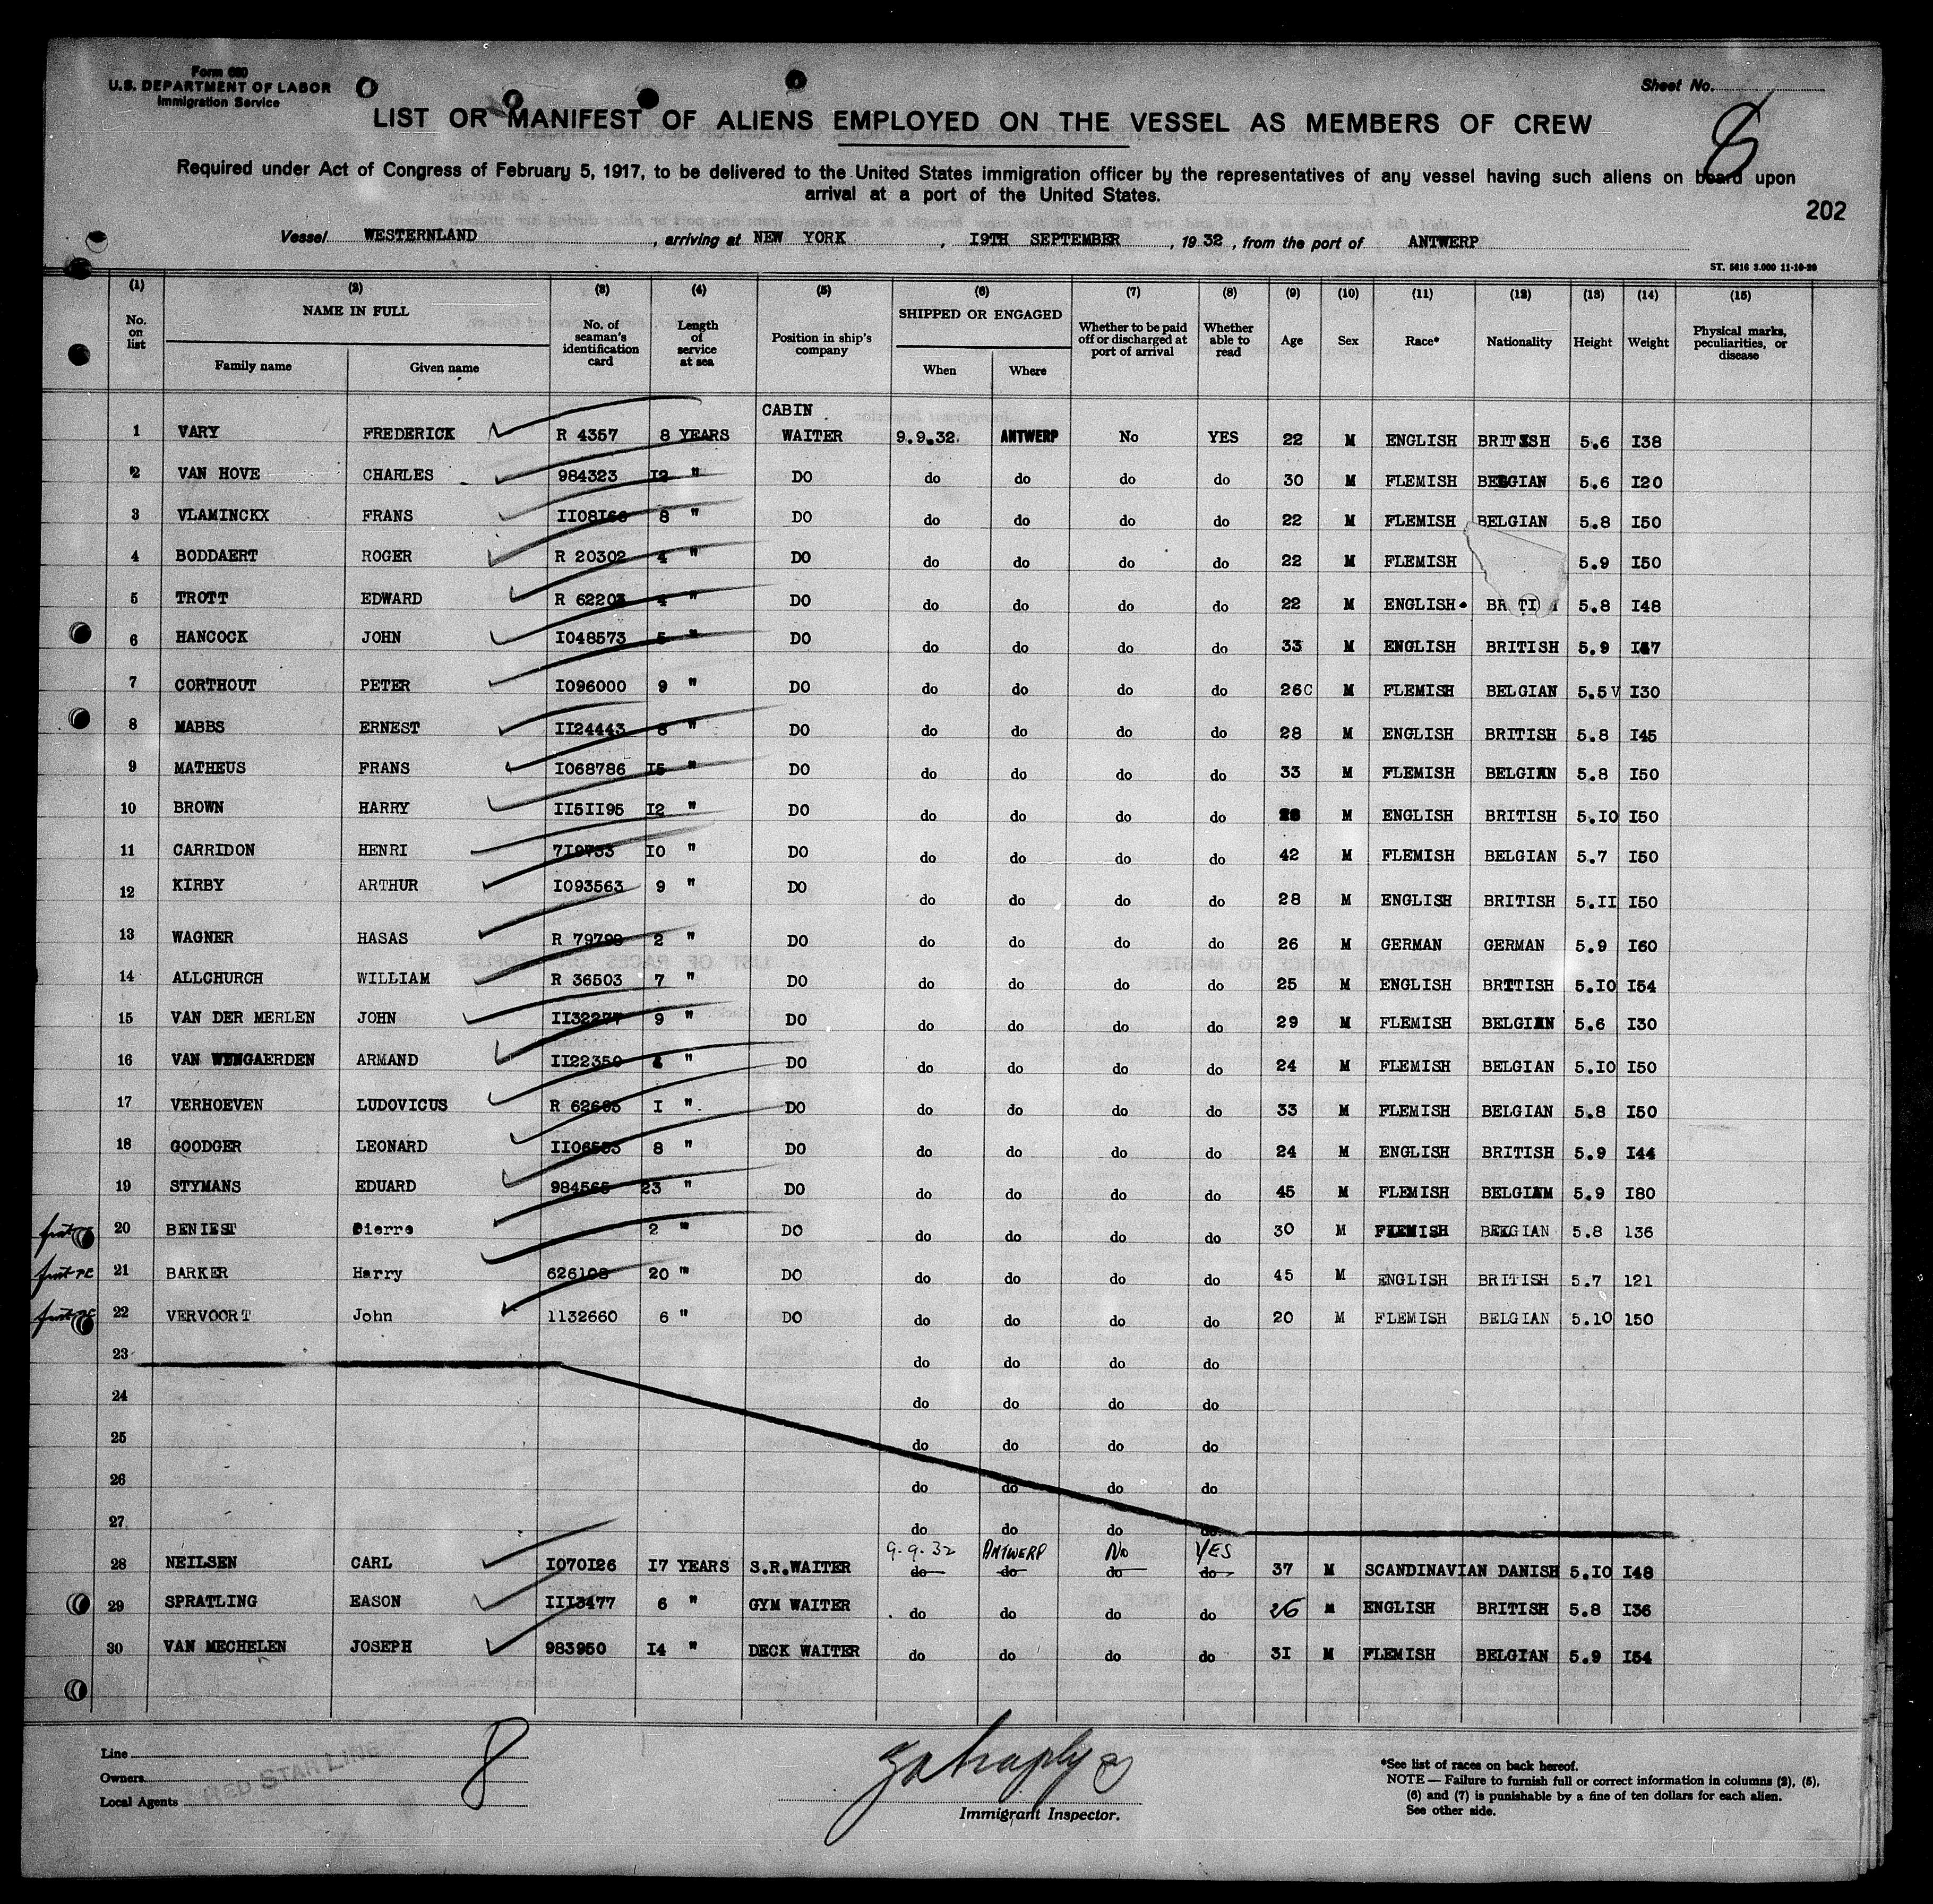 Form 680
U.S. DEPARTMENT OF LABOR
Immigration Service
Sheet No.
8
LIST OR MANIFEST OF ALIENS EMPLOYED ON THE VESSEL AS MEMBERS OF CREW
Required under Act of Congress of February 5, 1917, to be delivered to the United States immigration officer by the representatives of any vessel having such aliens on board upon
arrival at a port of the United States.
202
Vessel WESTERNLAND , arriving at NEW YORK , I9TH SEPTEMBER , 1932 , from the port of ANTWERP
ST. 5616 3.000 11-10-20
(1) (2) (3) (4) (5) (6) (7) (8) (9) (10) (11) (12) (13) (14) (15)
No. on list NAME IN FULL Family name Given name No. of seaman's identification card Length of service at sea Position in ship's company SHIPPED OR ENGAGED When Where Whether to be paid off or discharged at port of arrival Whether able to read Age Sex Race* Nationality Height Weight Physical marks, peculiarities, or disease
1 VARY FREDERICK R 4357 8 YEARS CABIN WAITER 9.9.32. ANTWERP No YES 22 M ENGLISH BRITISH 5.6 I38
2 VAN HOVE CHARLES 984323 I2 " DO do do do do 30 M FLEMISH BELGIAN 5.6 I20
3 VLAMINCKX FRANS II08I66 8 " DO do do do do 22 M FLEMISH BELGIAN 5.8 I50
4 BODDAERT ROGER R 20302 4 " DO do do do do 22 M FLEMISH 5.9 I50
5 TROTT EDWARD R 62203 4 " DO do do do do 22 M ENGLISH BR TI 5.8 I48
6 HANCOCK JOHN I048573 5 " DO do do do do 33 M ENGLISH BRITISH 5.9 I47
7 CORTHOUT PETER I096000 9 " DO do do do do 26 C M FLEMISH BELGIAN 5.5 V I30
8 MABBS ERNEST II24443 8 " DO do do do do 28 M ENGLISH BRITISH 5.8 I45
9 MATHEUS FRANS I068786 I5 " DO do do do do 33 M FLEMISH BELGIAN 5.8 I50
10 BROWN HARRY II5II95 I2 " DO do do do do 28 M ENGLISH BRITISH 5.I0 I50
11 CARRIDON HENRI 7I9753 I0 " DO do do do do 42 M FLEMISH BELGIAN 5.7 I50
12 KIRBY ARTHUR I093563 9 " DO do do do do 28 M ENGLISH BRITISH 5.II I50
13 WAGNER HASAS R 79798 2 " DO do do do do 26 M GERMAN GERMAN 5.9 I60
14 ALLCHURCH WILLIAM R 36503 7 " DO do do do do 25 M ENGLISH BRITISH 5.I0 I54
15 VAN DER MERLEN JOHN II32277 9 " DO do do do do 29 M FLEMISH BELGIAN 5.6 I30
16 VAN WYNGAERDEN ARMAND II22350 " DO do do do do 24 M FLEMISH BELGIAN 5.I0 I50
17 VERHOEVEN LUDOVICUS R 62695 I " DO do do do do 33 M FLEMISH BELGIAN 5.8 I50
18 GOODGER LEONARD II06553 8 " DO do do do do 24 M ENGLISH BRITISH 5.9 I44
19 STYMANS EDUARD 984565 23 " DO do do do do 45 M FLEMISH BELGIAM 5.9 I80
20 BENIEST Pierre 2 " DO do do do do 30 M FLEMISH BELGIAN 5.8 136
21 BARKER Harry 626108 20 " DO do do do do 45 M ENGLISH BRITISH 5.7 121
22 VERVOORT John 1132660 6 " DO do do do do 20 M FLEMISH BELGIAN 5.10 150
23 do do do do
24 do do do do
25 do do do do
26 do do do do
27 do do do do
9-9-32 ANTWERP No YES
28 NEILSEN CARL I070I26 I7 YEARS S.R.WAITER do do do do 37 M SCANDINAVIAN DANISH 5.I0 I48
29 SPRATLING EASON III3477 6 " GYM WAITER do do do do 26 M ENGLISH BRITISH 5.8 I36
30 VAN MECHELEN JOSEPH 983950 I4 " DECK WAITER do do do do 3I M FLEMISH BELGIAN 5.9 I54
Line
Owners
Local Agents
RED STAR LINE
8
Immigrant Inspector.
*See list of races on back hereof.
NOTE — Failure to furnish full or correct information in columns (2), (5),
(6) and (7) is punishable by a fine of ten dollars for each alien.
See other side.